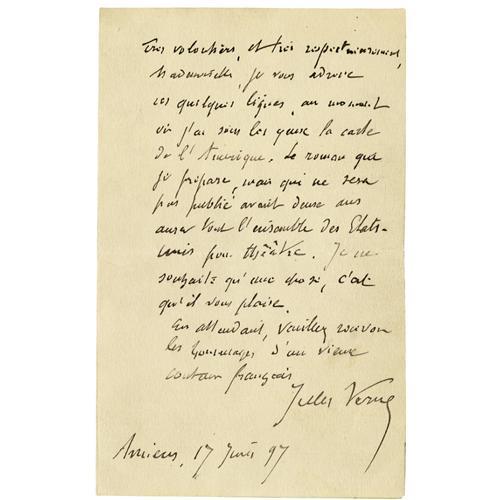 Très volontiers, et très respectueusement,
Mademoiselle, je vous adresse
ces quelques lignes, au moment
où j'ai sous les yeux la carte
de l'Amérique. Le roman que
je prépare, mais qui ne sera
pas publié avant deux ans
aura tout l'ensemble des Etats-
unis pour théâtre. Je ne
souhaite qu'une chose, c'est
qu'il vous plaise.
En attendant, veuillez recevoir
les hommages d'un vieux
conteur français
Jules Verne
Amiens, 17 Juin 97